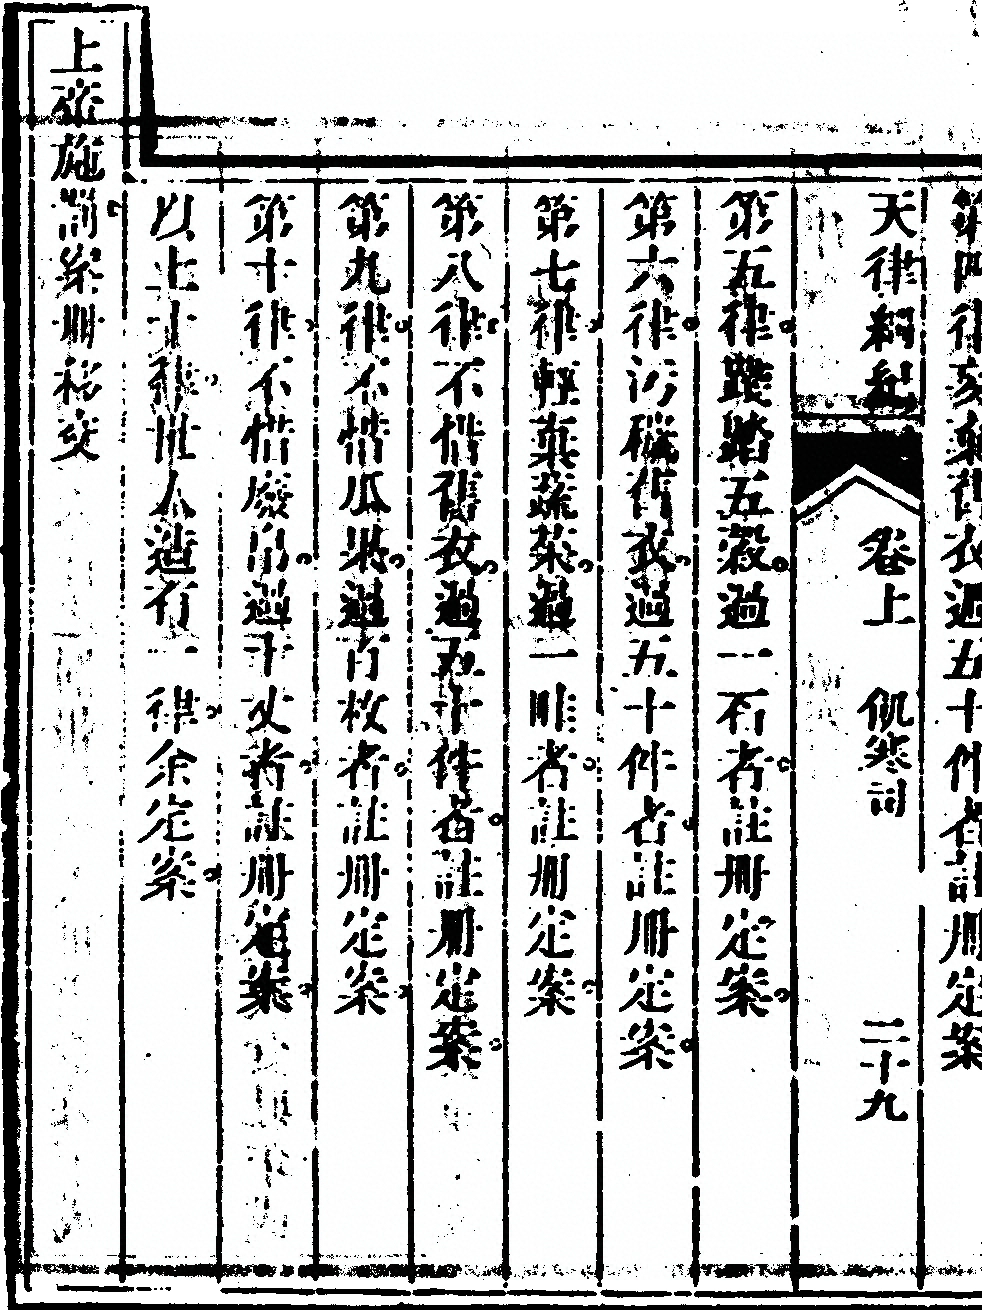 第四律妄棄舊衣過五十件者註冊定案
天律綱紀 卷上 飢寒司 二十九
第五律踐踏五穀過一石者註冊定案
第六律汚穢舊衣過五十件者註冊定案
第七律輕棄蔬菜過一畦者註冊定案
第八律不惜舊衣過五十件者註冊定案
第九律不惜瓜果過百枚者註冊定案
第十律不惜廢帛過十丈者註冊定案
以上十律世人造有一律余定案
上帝施罰案冊移交